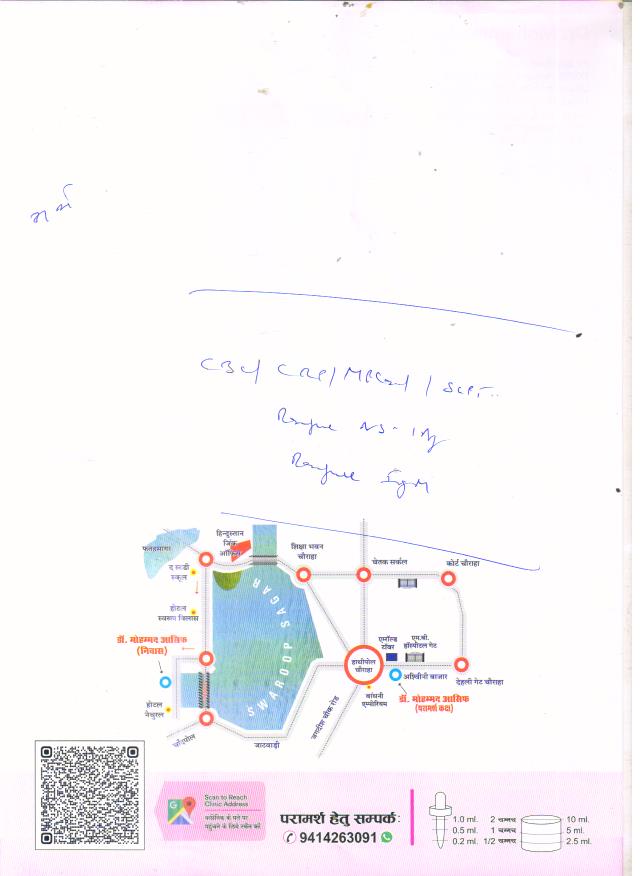 CBC/ CRP/ MPCard / SGPT..
Dengue NS-1 Ag
Dengue IgM
फतहसागर
हिन्दुस्तान
जिंक
ऑफिस
शिक्षा भवन
चौराहा
चेतक सर्कल
कोर्ट चौराहा
द स्टडी
स्कूल
होटल
स्वरूप विलास
SWAROOP SAGAR
डॉ. मोहम्मद आसिफ
(निवास)
एमरॉल्ड
टॉवर
एम.बी.
हॉस्पीटल गेट
हाथीपोल
चौराहा
अश्विनी बाजार
देहली गेट चौराहा
डॉ. मोहम्मद आसिफ
(परामर्श कक्ष)
बांधनी
एम्पोरियम
होटल
नेचुरल
चाँदपोल
जाटवाड़ी
जगदीश चौक रोड
Scan to Reach
Clinic Address
क्लीनिक के पते पर
पहुंचने के लिये स्कैन करें
परामर्श हेतु सम्पर्क:
9414263091
1.0 ml. 2 चम्मच 10 ml.
0.5 ml. 1 चम्मच 5 ml.
0.2 ml. 1/2 चम्मच 2.5 ml.